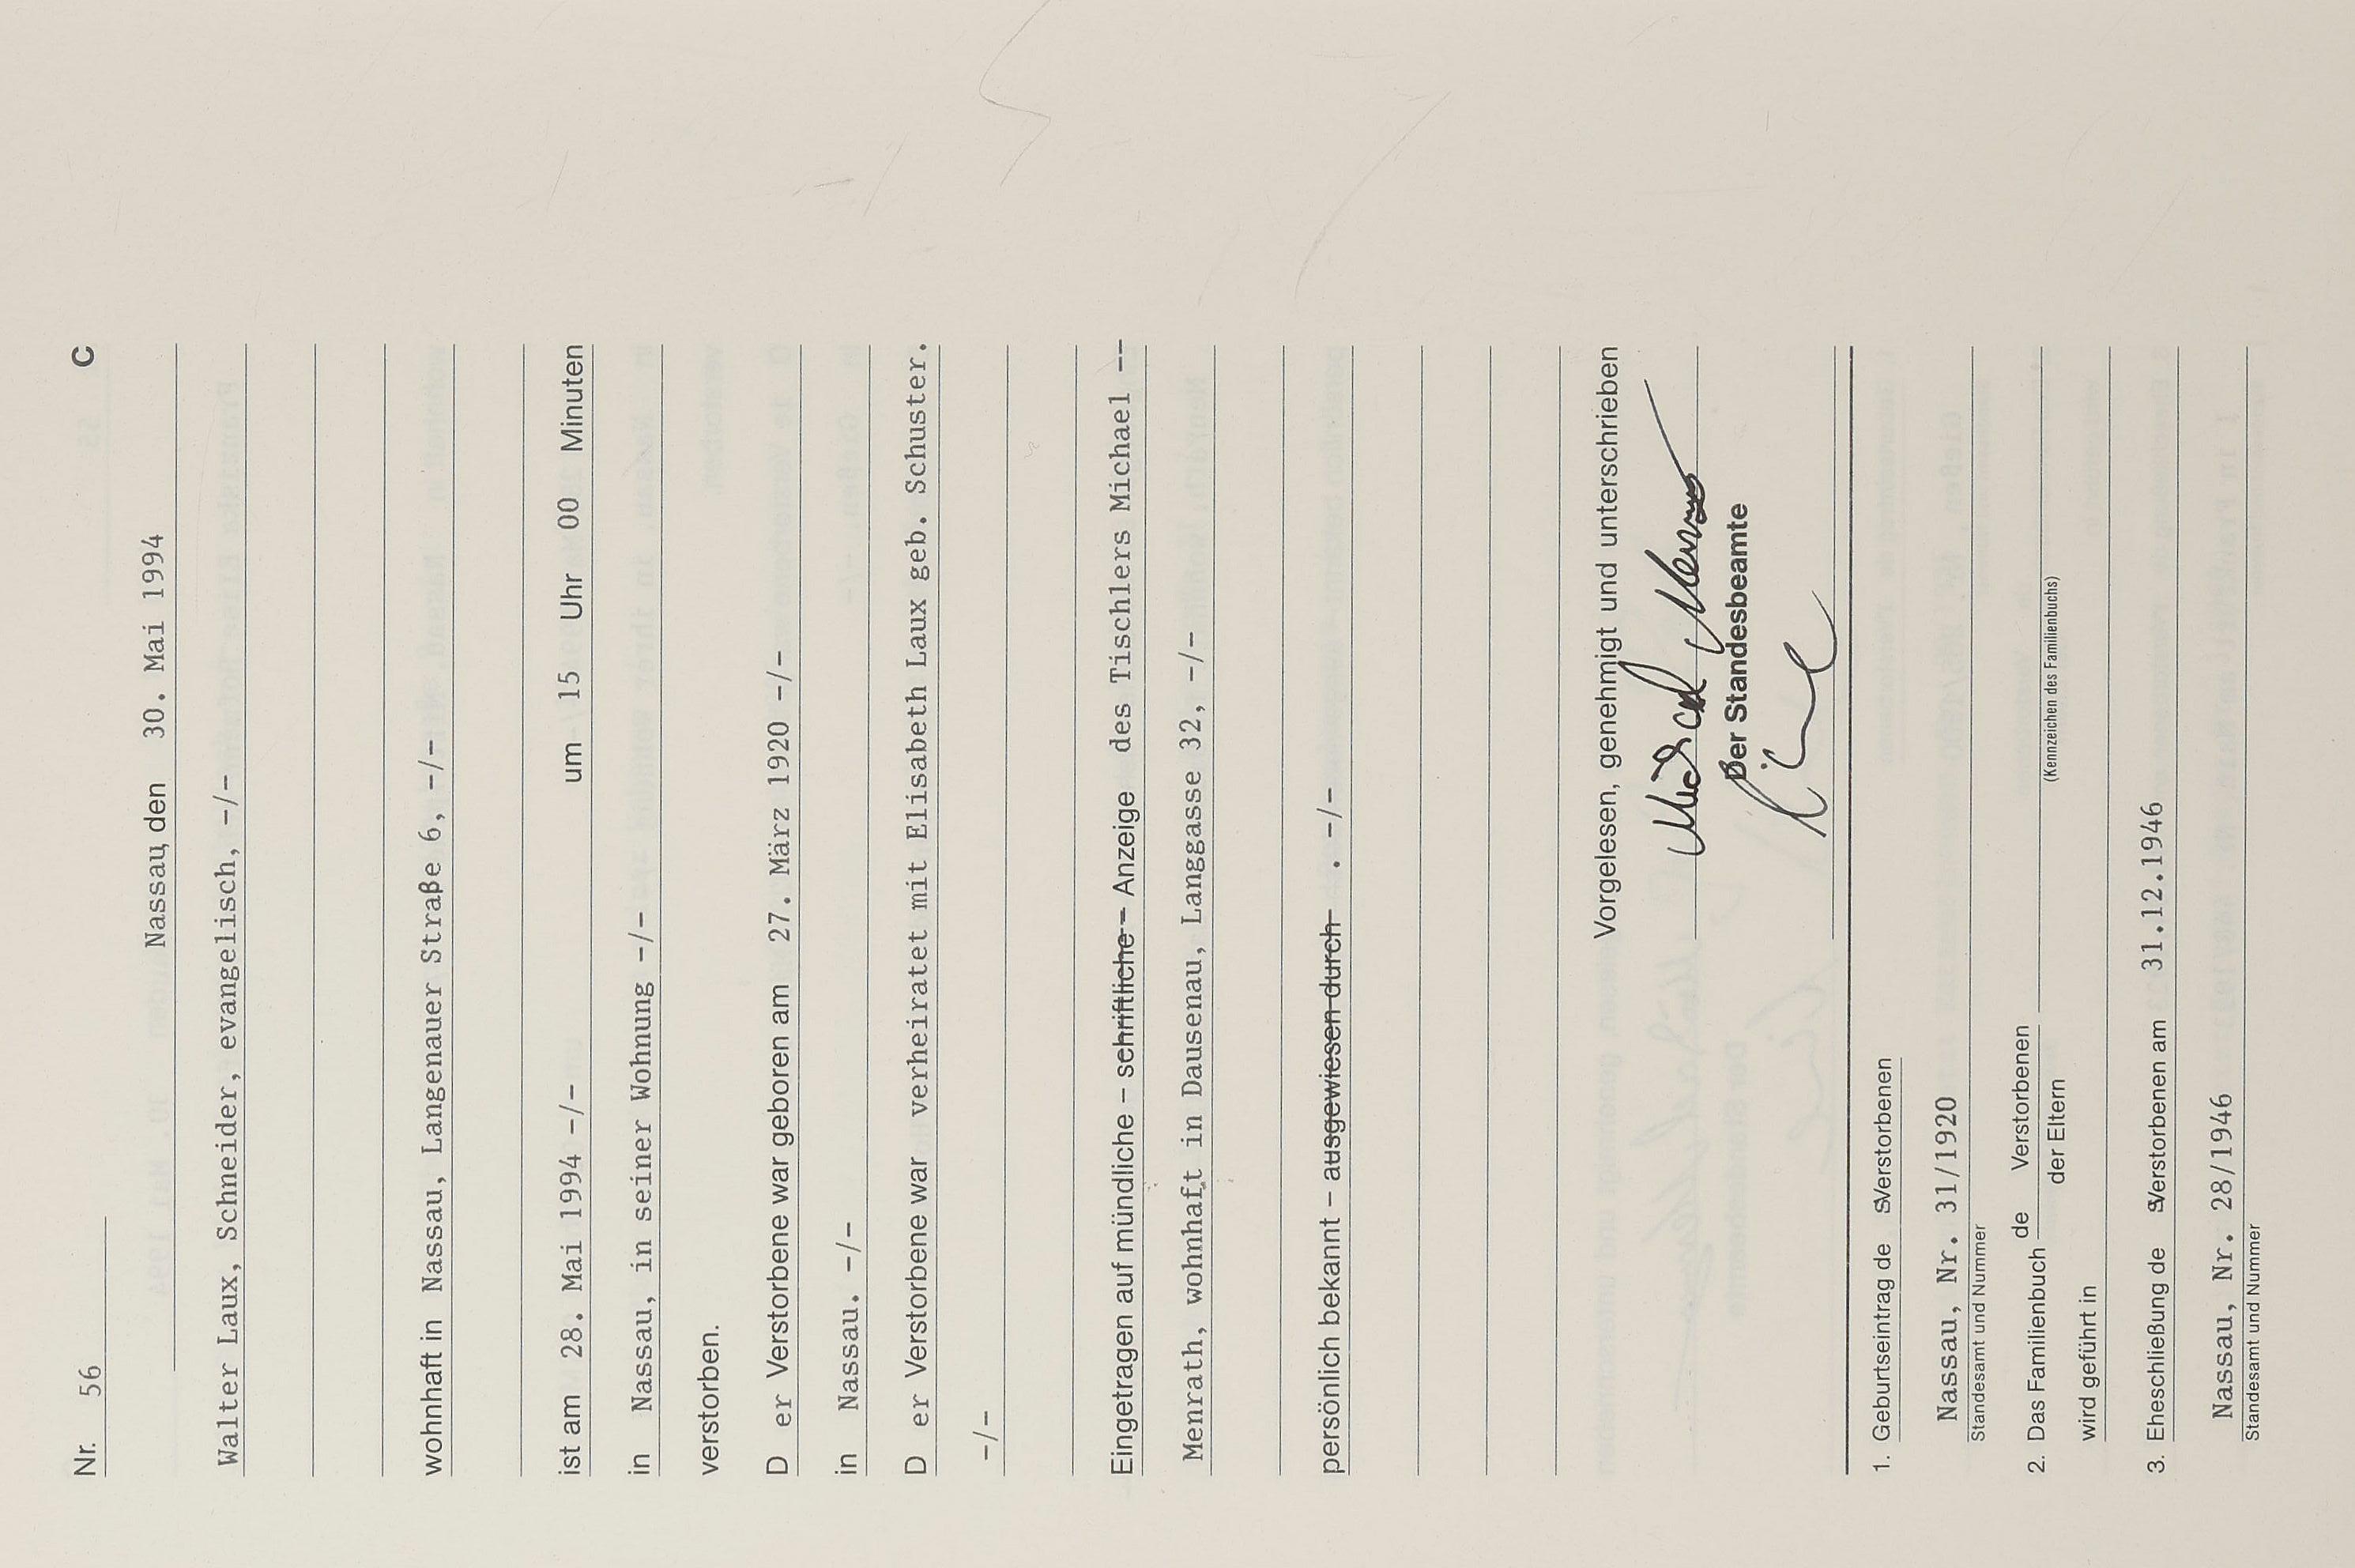 Nr. 56 C
Nassau, den 30. Mai 1994
Walter Laux, Schneider, evangelisch, -/-
wohnhaft in Nassau, Langenauer Straße 6, -/-
ist am 28. Mai 1994 -/- um 15 Uhr 00 Minuten
in Nassau, in seiner Wohnung -/-
verstorben.
D er Verstorbene war geboren am 27. März 1920 -/-
in Nassau. -/-
D er Verstorbene war verheiratet mit Elisabeth Laux geb. Schuster.
-/-
Eingetragen auf mündliche – schriftliche – Anzeige des Tischlers Michael --
Menrath, wohnhaft in Dausenau, Langgasse 32, -/-
persönlich bekannt – ausgewiesen durch . -/-
Vorgelesen, genehmigt und unterschrieben
Michael Menrath
Der Standesbeamte
1. Geburtseintrag de s Verstorbenen
Nassau, Nr. 31/1920
Standesamt und Nummer
2. Das Familienbuch de Verstorbenen
der Eltern
(Kennzeichen des Familienbuchs)
wird geführt in
3. Eheschließung de s Verstorbenen am 31.12.1946
Nassau, Nr. 28/1946
Standesamt und Nummer